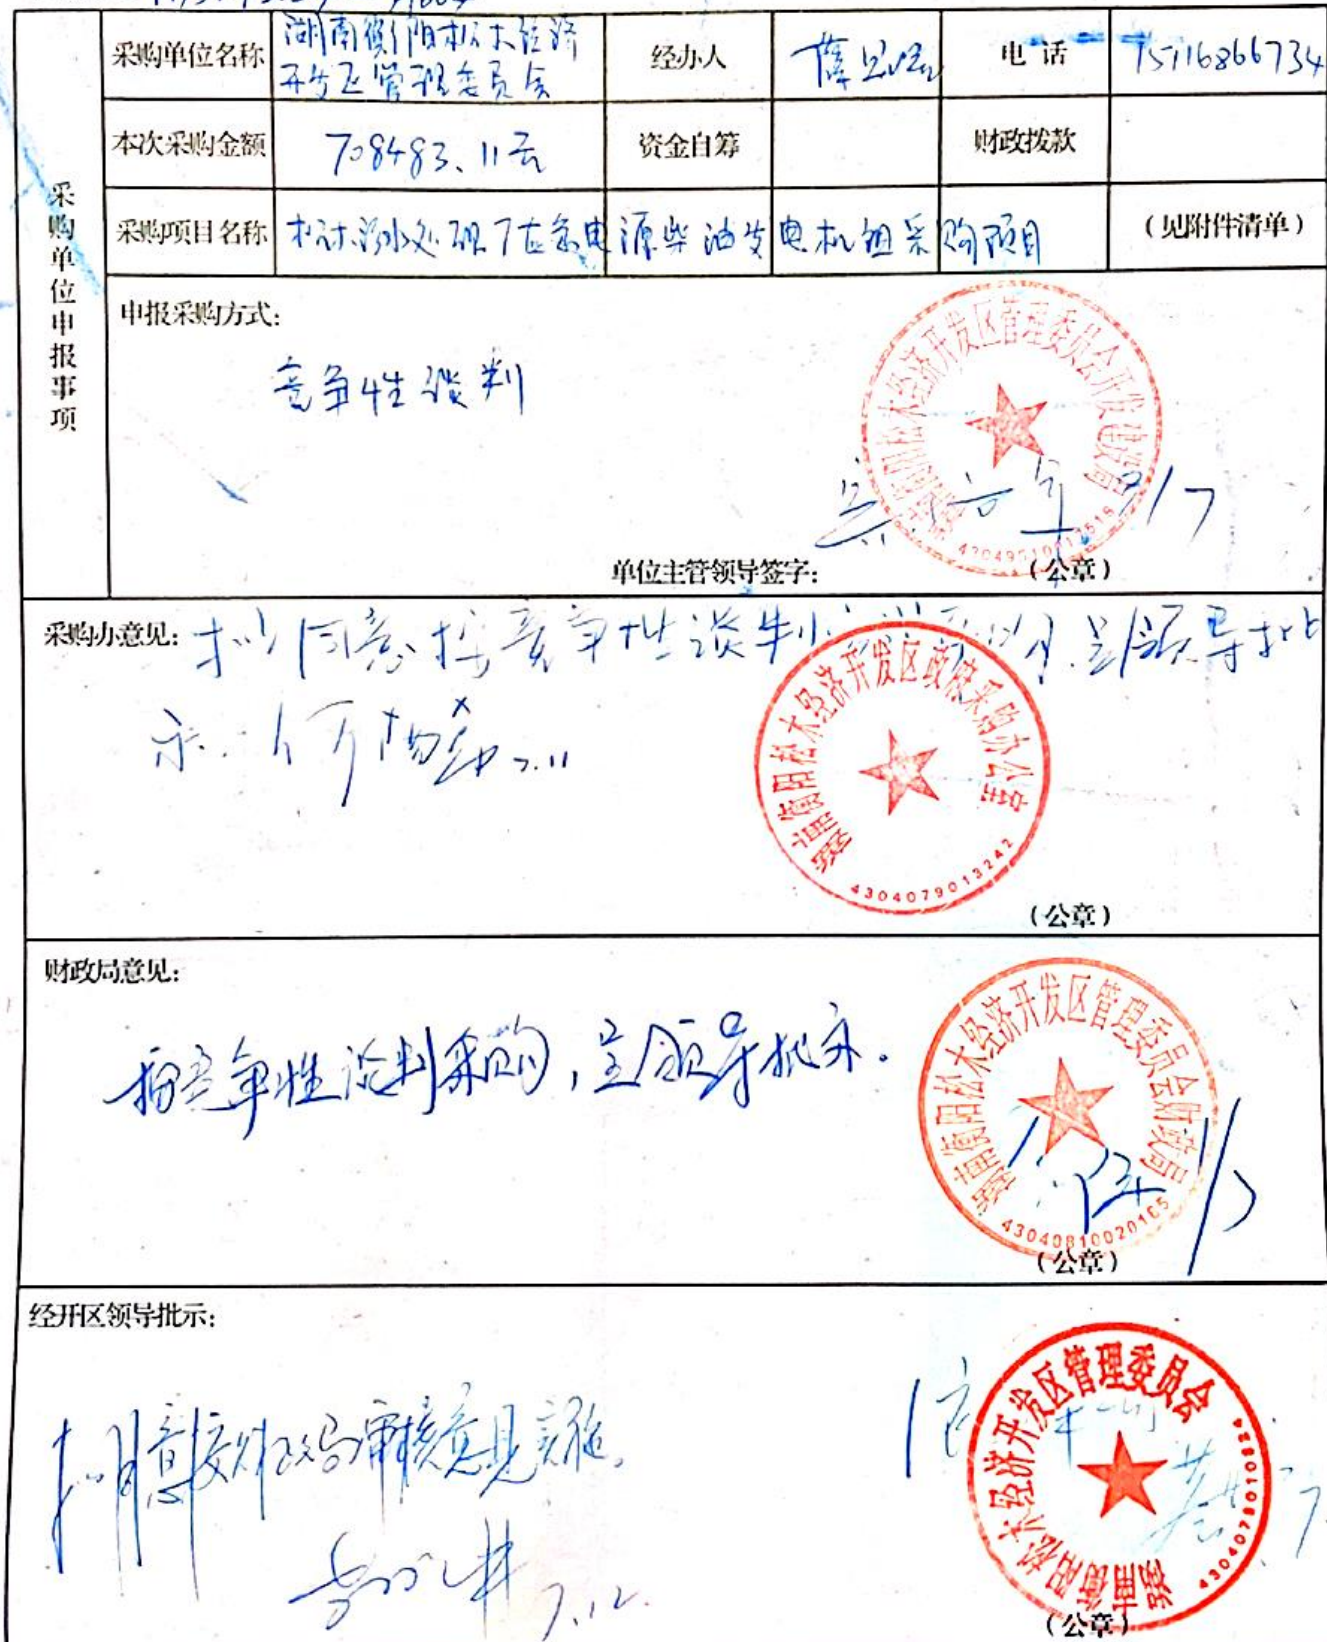 采购单位申报事项
采购单位名称 湖南衡阳松木经济开发区管理委员会 经办人 薛 电话 15116866734
本次采购金额 708483.11元 资金自筹 财政拨款
采购项目名称 松木污水处理厂应急电源柴油发电机组采购项目 (见附件清单)
申报采购方式:
竞争性谈判
湖南衡阳松木经济开发区管理委员会开发建设局
单位主管领导签字: (公章)
采购办意见: 拟同意按竞争性谈判 呈领导批
示. 何 7.11
湖南衡阳松木经济开发区政府采购办公室
4304079013242
(公章)
财政局意见:
拟竞争性谈判采购,呈领导批示.
湖南衡阳松木经济开发区管理委员会财政局
43040810020165
(公章)
经开区领导批示:
拟同意按财政局审核意见实施.
7.12.
湖南衡阳松木经济开发区管理委员会
(公章)